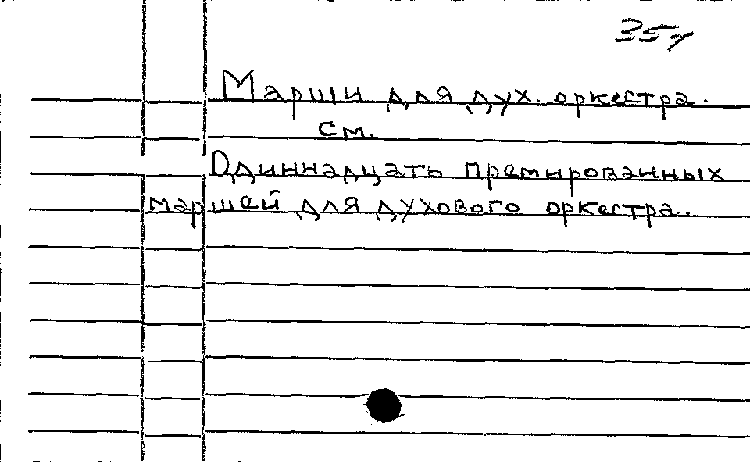 35у
Марши для дух. оркестра.
см.
Одиннадцать премированных
маршей для духового оркестра.